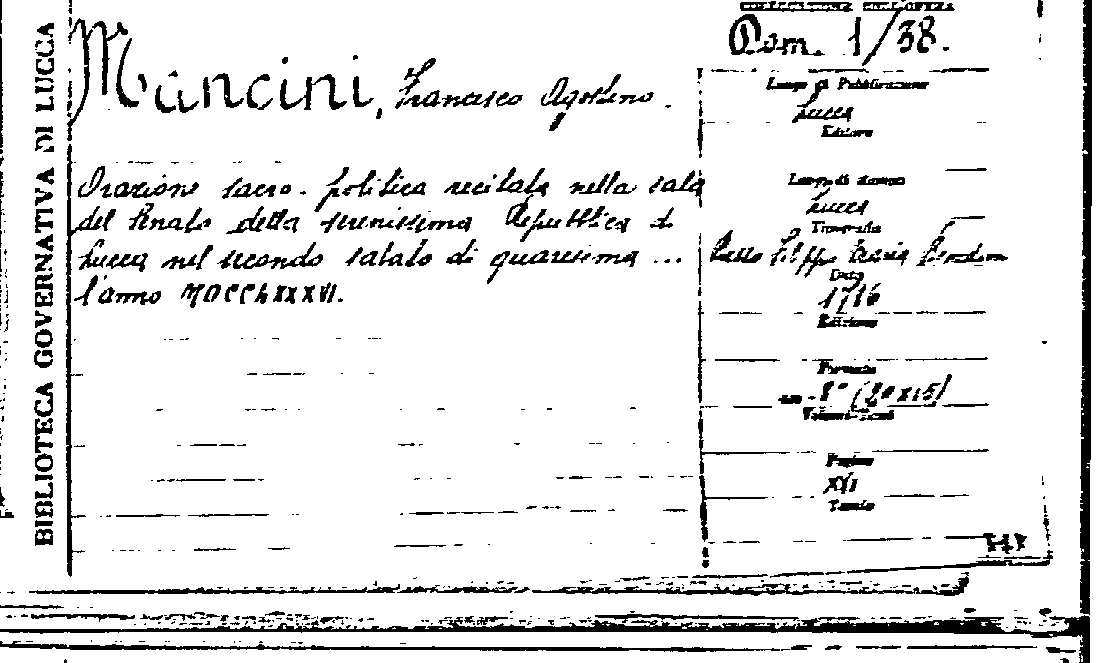 BIBLIOTECA GOVERNATIVA DI LUCCA
Dom. 1/38.
Mancini, Francesco Agostino.
Orazione sacro-politica recitata nella sala
del Senato della serenissima Repubblica di
Lucca nel secondo sabato di quaresima ...
l'anno MDCCLXXXVI.
Luogo di Pubblicazione
Lucca
Editore
Luogo di stampa
Lucca
Tipografia
Filippo Maria
Data
Edizione
Formato
in - 8° (20x15)
Volumi-Tomi
Pagine
XVI
Tavole